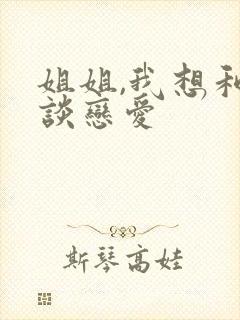 姐姐,我想和
談戀愛
斯琴高娃